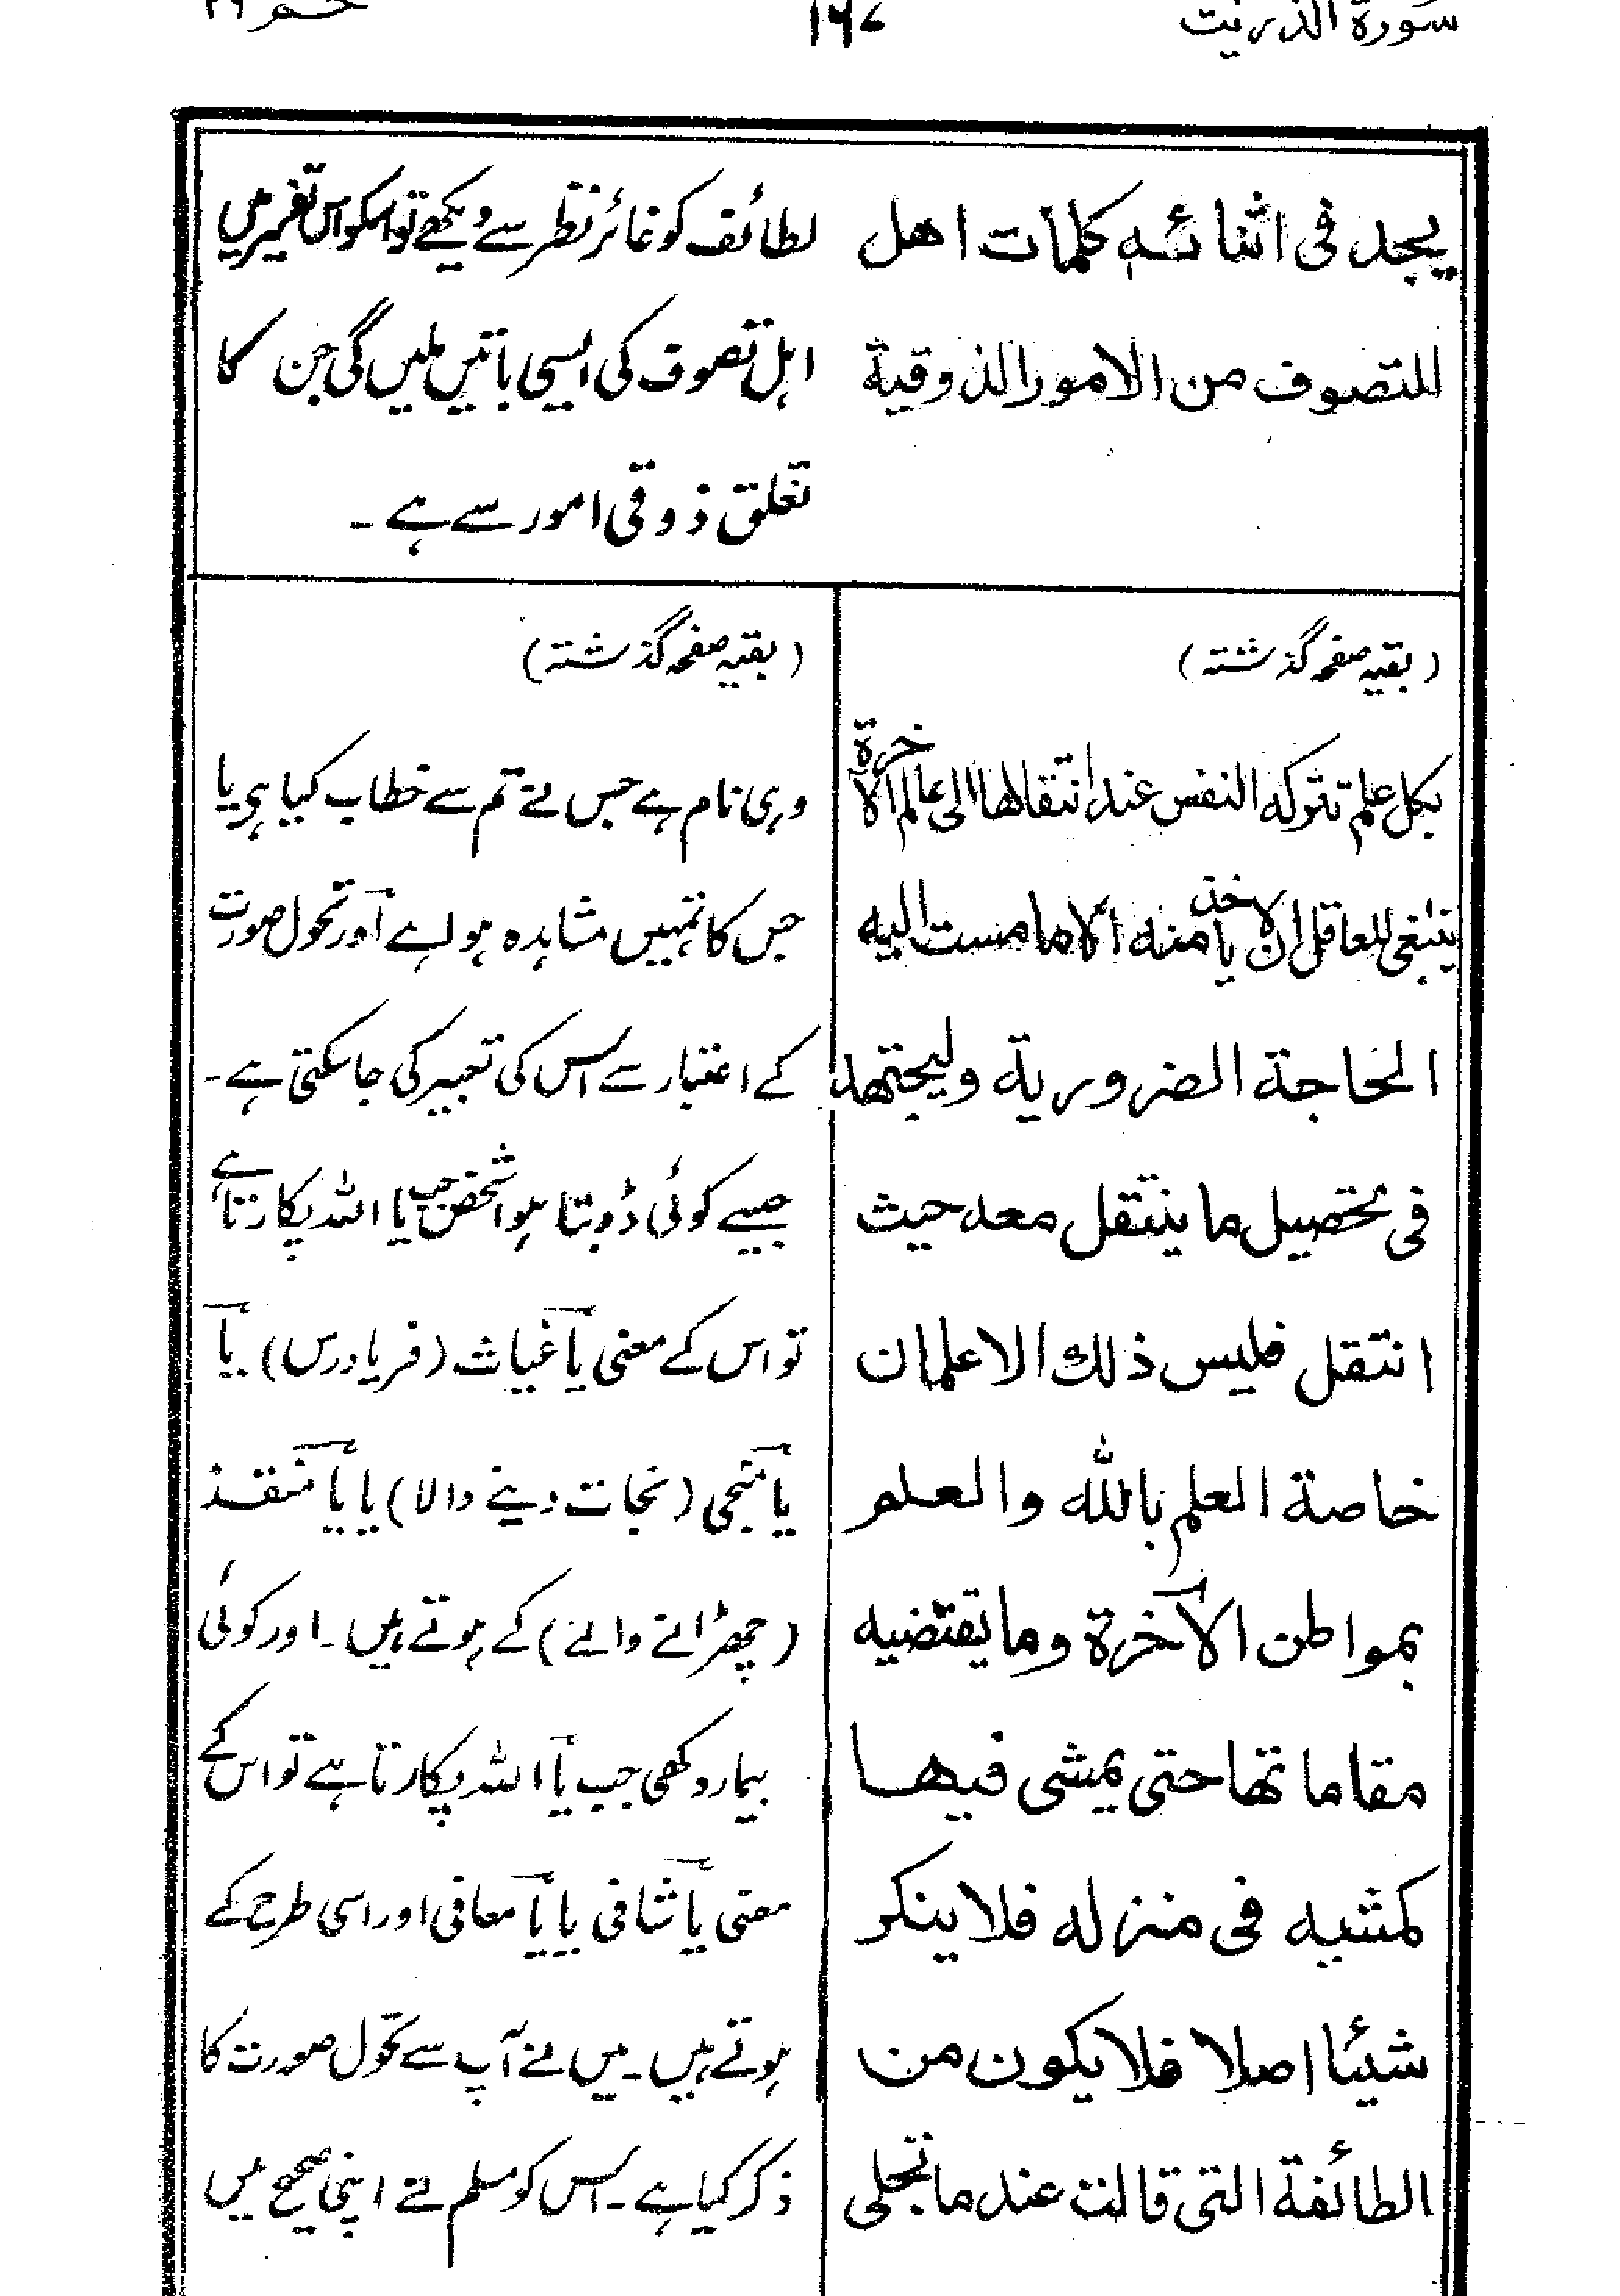 سورة الذريت
١٦٧
حم ٢٦
يجد فى اثنائه كلمات اهل
للتصوف من الامور الذوقية
لطائف کو غائر نظر سے دیکھے تو اسکو اس تفسیر میں
اہل تصوف کی ایسی باتیں ملیں گی جن کا
تعلق ذوقی امور سے ہے ۔
(بقیہ صفحہ گذشتہ)
بكل علم تتركه النفس عند انتقالها الى عالم الآخرة
ينبغى للعاقل ان لا ياخذ منه الا ما مست اليه
الحاجة الضرورية وليجتهد
فى تحصيل ما ينتقل معه حيث
انتقل فليس ذلك الا علمان
خاصة العلم بالله والعلم
بمواطن الآخرة وما يقتضيه
مقاماتها حتى يمشى فيها
كمشيه فى منزله فلا ينكر
شيئا اصلا فلا يكون من
الطائفة التى قالت عند ما تجلى
(بقیہ صفحہ گذشتہ)
وہی نام ہے جس نے تم سے خطاب کیا ہو یا
جس کا تمہیں مشاہدہ ہوا ہے اور تحول صورت
کے اعتبار سے اس کی تعبیر کی جاسکتی ہے ۔
جیسے کوئی ڈوبتا ہوا شخص جب یا اللہ پکارتا ہے
تو اس کے معنی یا غیاث (فریادرس) یا
یا منجی (نجات دینے والا) یا یا منقذ
(چھڑانے والے) کے ہوتے ہیں ۔ اور کوئی
بیمار دکھی جب یا اللہ پکارتا ہے تو اس کے
معنی یا شافی یا یا معافی اور اسی طرح کے
ہوتے ہیں ۔ میں نے آپ سے تحول صورت کا
ذکر کیا ہے ۔ اس کو مسلم نے اپنی صحیح میں